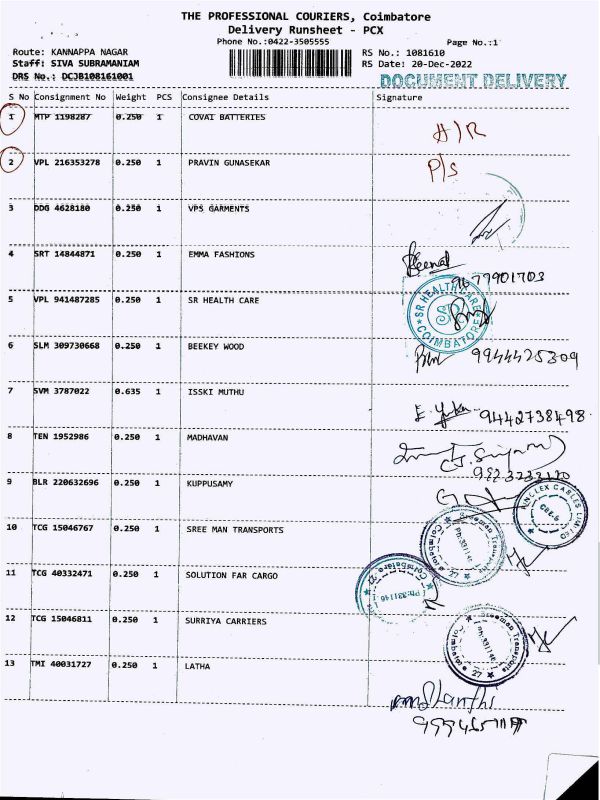 THE PROFESSIONAL COURIERS, Coimbatore
Delivery Runsheet - PCX
Phone No.:0422-3505555
Page No.:1
Route: KANNAPPA NAGAR
RS No.: 1081610
Staff: SIVA SUBRAMANIAM
RS Date: 20-Dec-2022
DRS No.: DCJB108161001
DOCUMENT DELIVERY
S No Consignment No Weight PCS Consignee Details Signature
1 MTP 1198287 0.250 1 COVAI BATTERIES
A/R
2 VPL 216353278 0.250 1 PRAVIN GUNASEKAR P/S
3 DDG 4628180 0.250 1 VPS GARMENTS
4 SRT 14844871 0.250 1 EMMA FASHIONS
9677901703
5 VPL 941487285 0.250 1 SR HEALTH CARE
SR HEALTH CARE
SR
COIMBATORE
6 SLM 309730668 0.250 1 BEEKEY WOOD
9944425309
7 SVM 3787022 0.635 1 ISSKI MUTHU
9442738498
8 TEN 1952986 0.250 1 MADHAVAN
9 BLR 220632696 0.250 1 KUPPUSAMY
CABLES LIMITED
10 TCG 15046767 0.250 1 SREE MAN TRANSPORTS
Sreeman Transports
Ph:331146
Coimbatore 27
11 TCG 40332471 0.250 1 SOLUTION FAR CARGO
Coimbatore 27
Ph:331146
12 TCG 15046811 0.250 1 SURRIYA CARRIERS
Sreeman Transports
Ph:331146
Coimbatore 27
13 TMI 40031727 0.250 1 LATHA